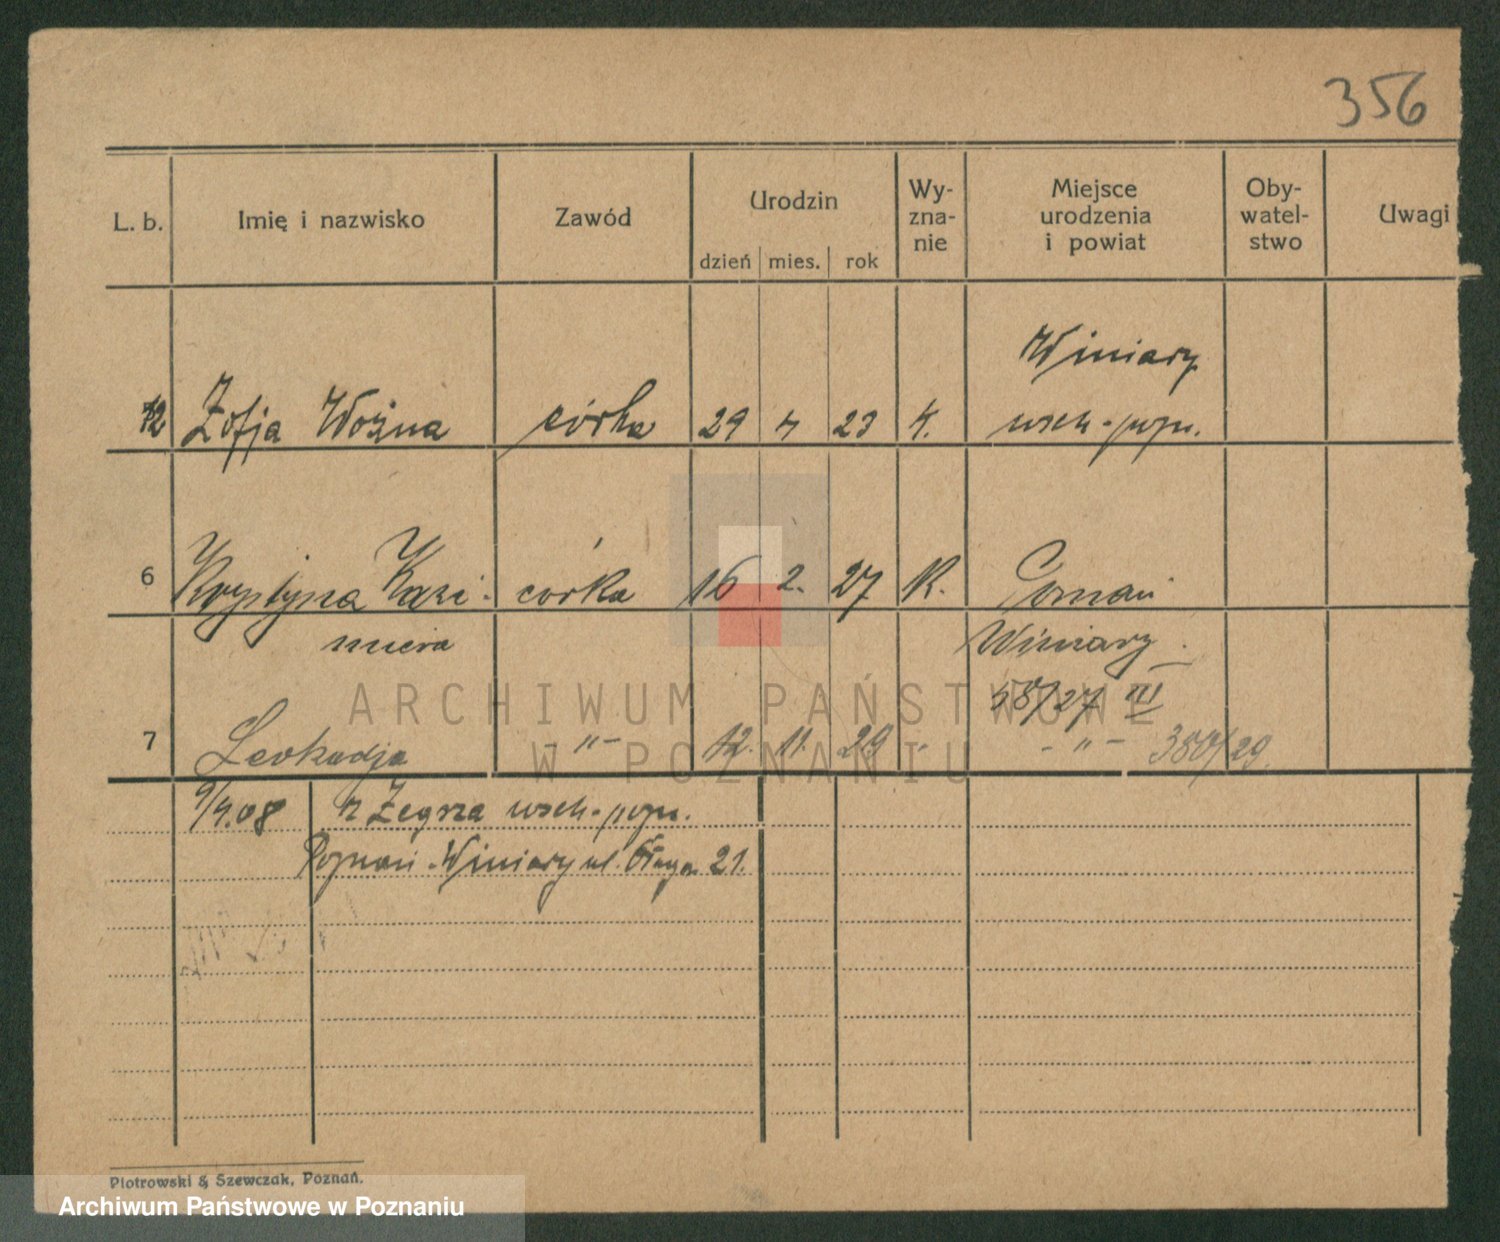 356
L. b. Imię i nazwisko Zawód Urodzin Wy-zna-nie Miejsce urodzenia i powiat Oby-watel-stwo Uwagi
dzień mies. rok
Winiary
12 Zofja Woźna córka 29 4 23 k. wsch-pozn.
6 Krystyna Kazi- córka 16 2. 27 K. Poznań
miera Winiary
58/27 III
7 Leokadja -"- 12. 11. 29 -"- 380/29.
9/4.08 z Żegrza wsch-pozn.
Poznań-Winiary ul. 21.
ARCHIWUM PAŃSTWOWE
W POZNANIU
Piotrowski & Szewczak, Poznań.
Archiwum Państwowe w Poznaniu